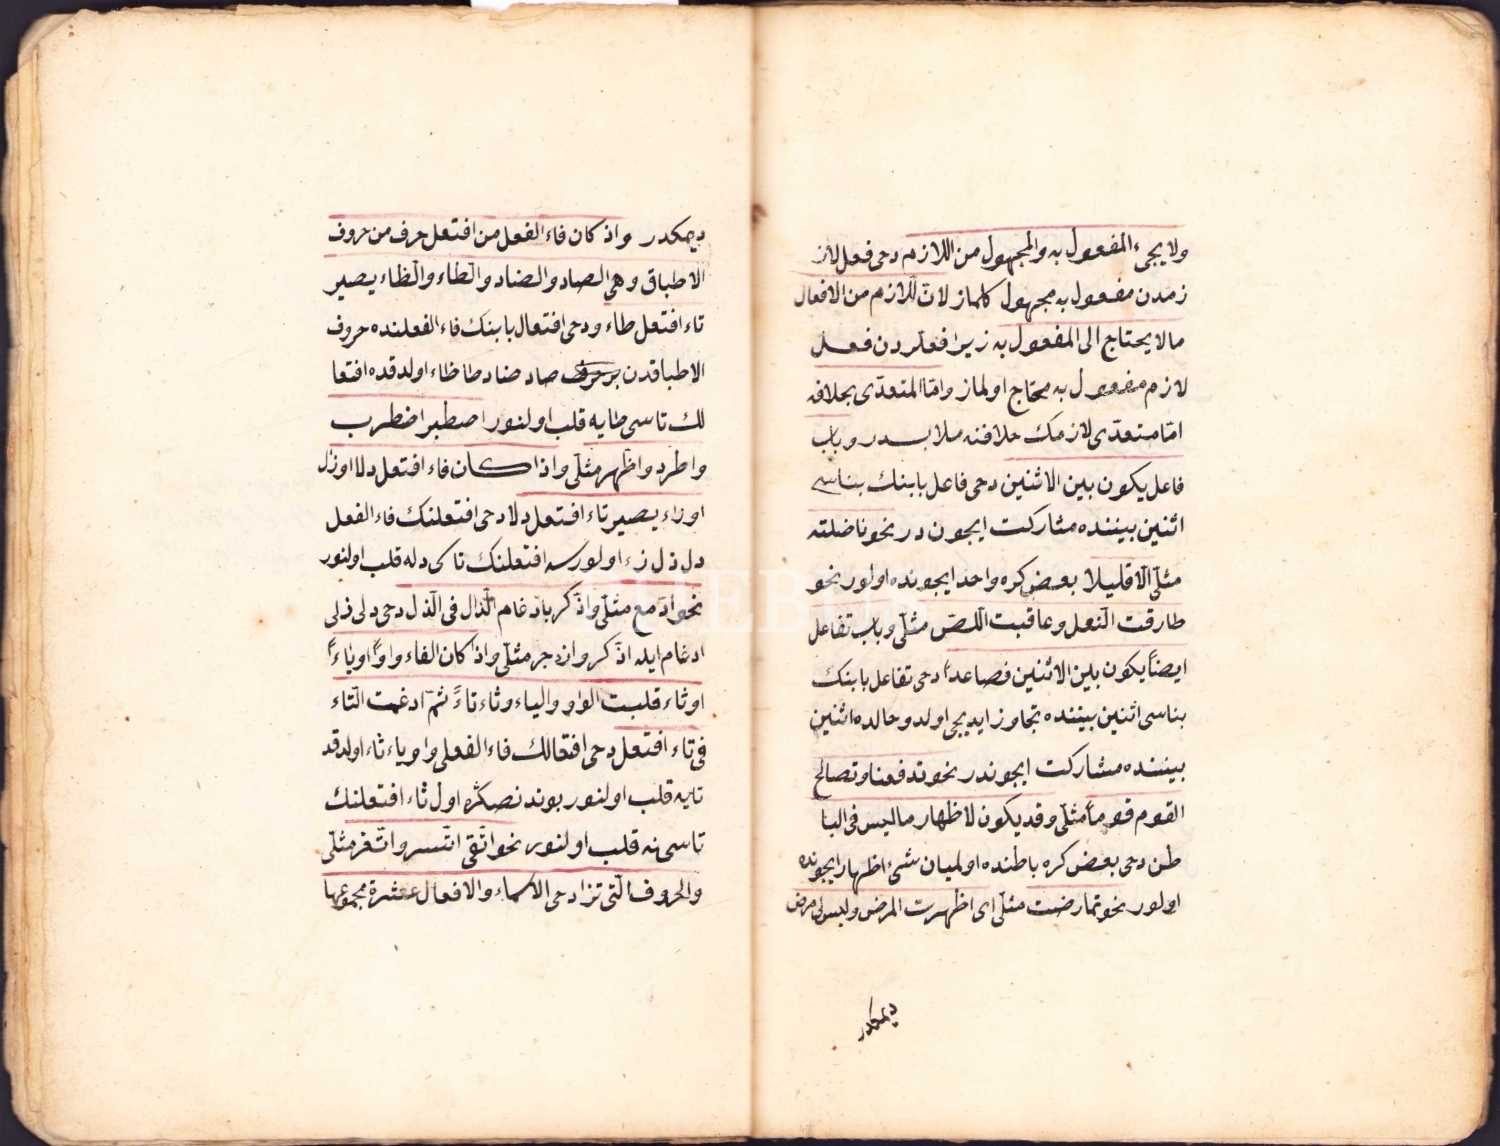 ولا يجىء المفعول به والمجهول من اللازم دحى فعل لاز
زمدن مفعول به مجهول كلماز لانّ اللازم من الافعال
ما لا يحتاج الى المفعول به زيرا فعللردن فعل
لازم مفعول به محتاج اولماز وامّا المتعدّى بخلافه
امّا متعدّى لازمك خلافنه ملابسدر وباب
فاعل يكون بين الاثنين دحى فاعل بابنك بناسى
اثنين بيننده مشاركت ايجون در نحو ناضلته
مثلى الّا قليلا بعض كره واحد ايجونده اولور نحو
طارقت النّعل وعاقبت اللصّ مثلى وباب تفاعل
ايضاً يكون بين الاثنين فصاعداً دحى تفاعل بابنك
بناسى اثنين بيننده تجاوز ايديجى اولدوحالده اثنين
بيننده مشاركت ايجوندر نحو تدفعنا وتصالح
القوم قوماً مثلى وقد يكون لاظهار ما ليس فى البا
طن دحى بعض كره باطنده اولميان شىء اظهار ايجونده
اولور نحو تمارضت مثلى اى اظهرت المرض وليس لى مرض
ديمكدر
ديمكدر واذ كان فاء الفعل من افتعل حرف من حروف
الاطباق وهى الصاد والضاد والطاء والظاء يصير
تاء افتعل طاء ودحى افتعال بابنك فاء الفعلنده حروف
الاطباقدن بر حروف صاد ضاد طا ظاء اولدقده افتعا
لك تاسى طايه قلب اولنور اصطبر اضطرب
واطرد واظهر مثلى واذا كان فاء افتعل دلا اوزل
اوزاء يصير تاء افتعل دلا دحى افتعلنك فاء الفعل
دل ذل زء اولورسه افتعلنك تاكى دله قلب اولنور
نحو ادّمع مثلى واذّكر بادغام الذّال فى الذل دحى دلى ذلى
ادغام ايله اذكر وازدجر مثلى واذ كان الفاء واواً اوياءً
اوثاء قلبت الواو والياء وثاء تاءً ثمّ ادغمت التّاء
فى تاء افتعل دحى افتعالك فاء الفعلى واو ياء ثاء اولدقد
تايه قلب اولنور بوندنصكره اول ثاء افتعلنك
تاسى نه قلب اولنور نحو اتّقى اتّسر واتّغر مثلى
والحروف الّتى تزاد حى الاسماء والافعال عشرة مجموعها